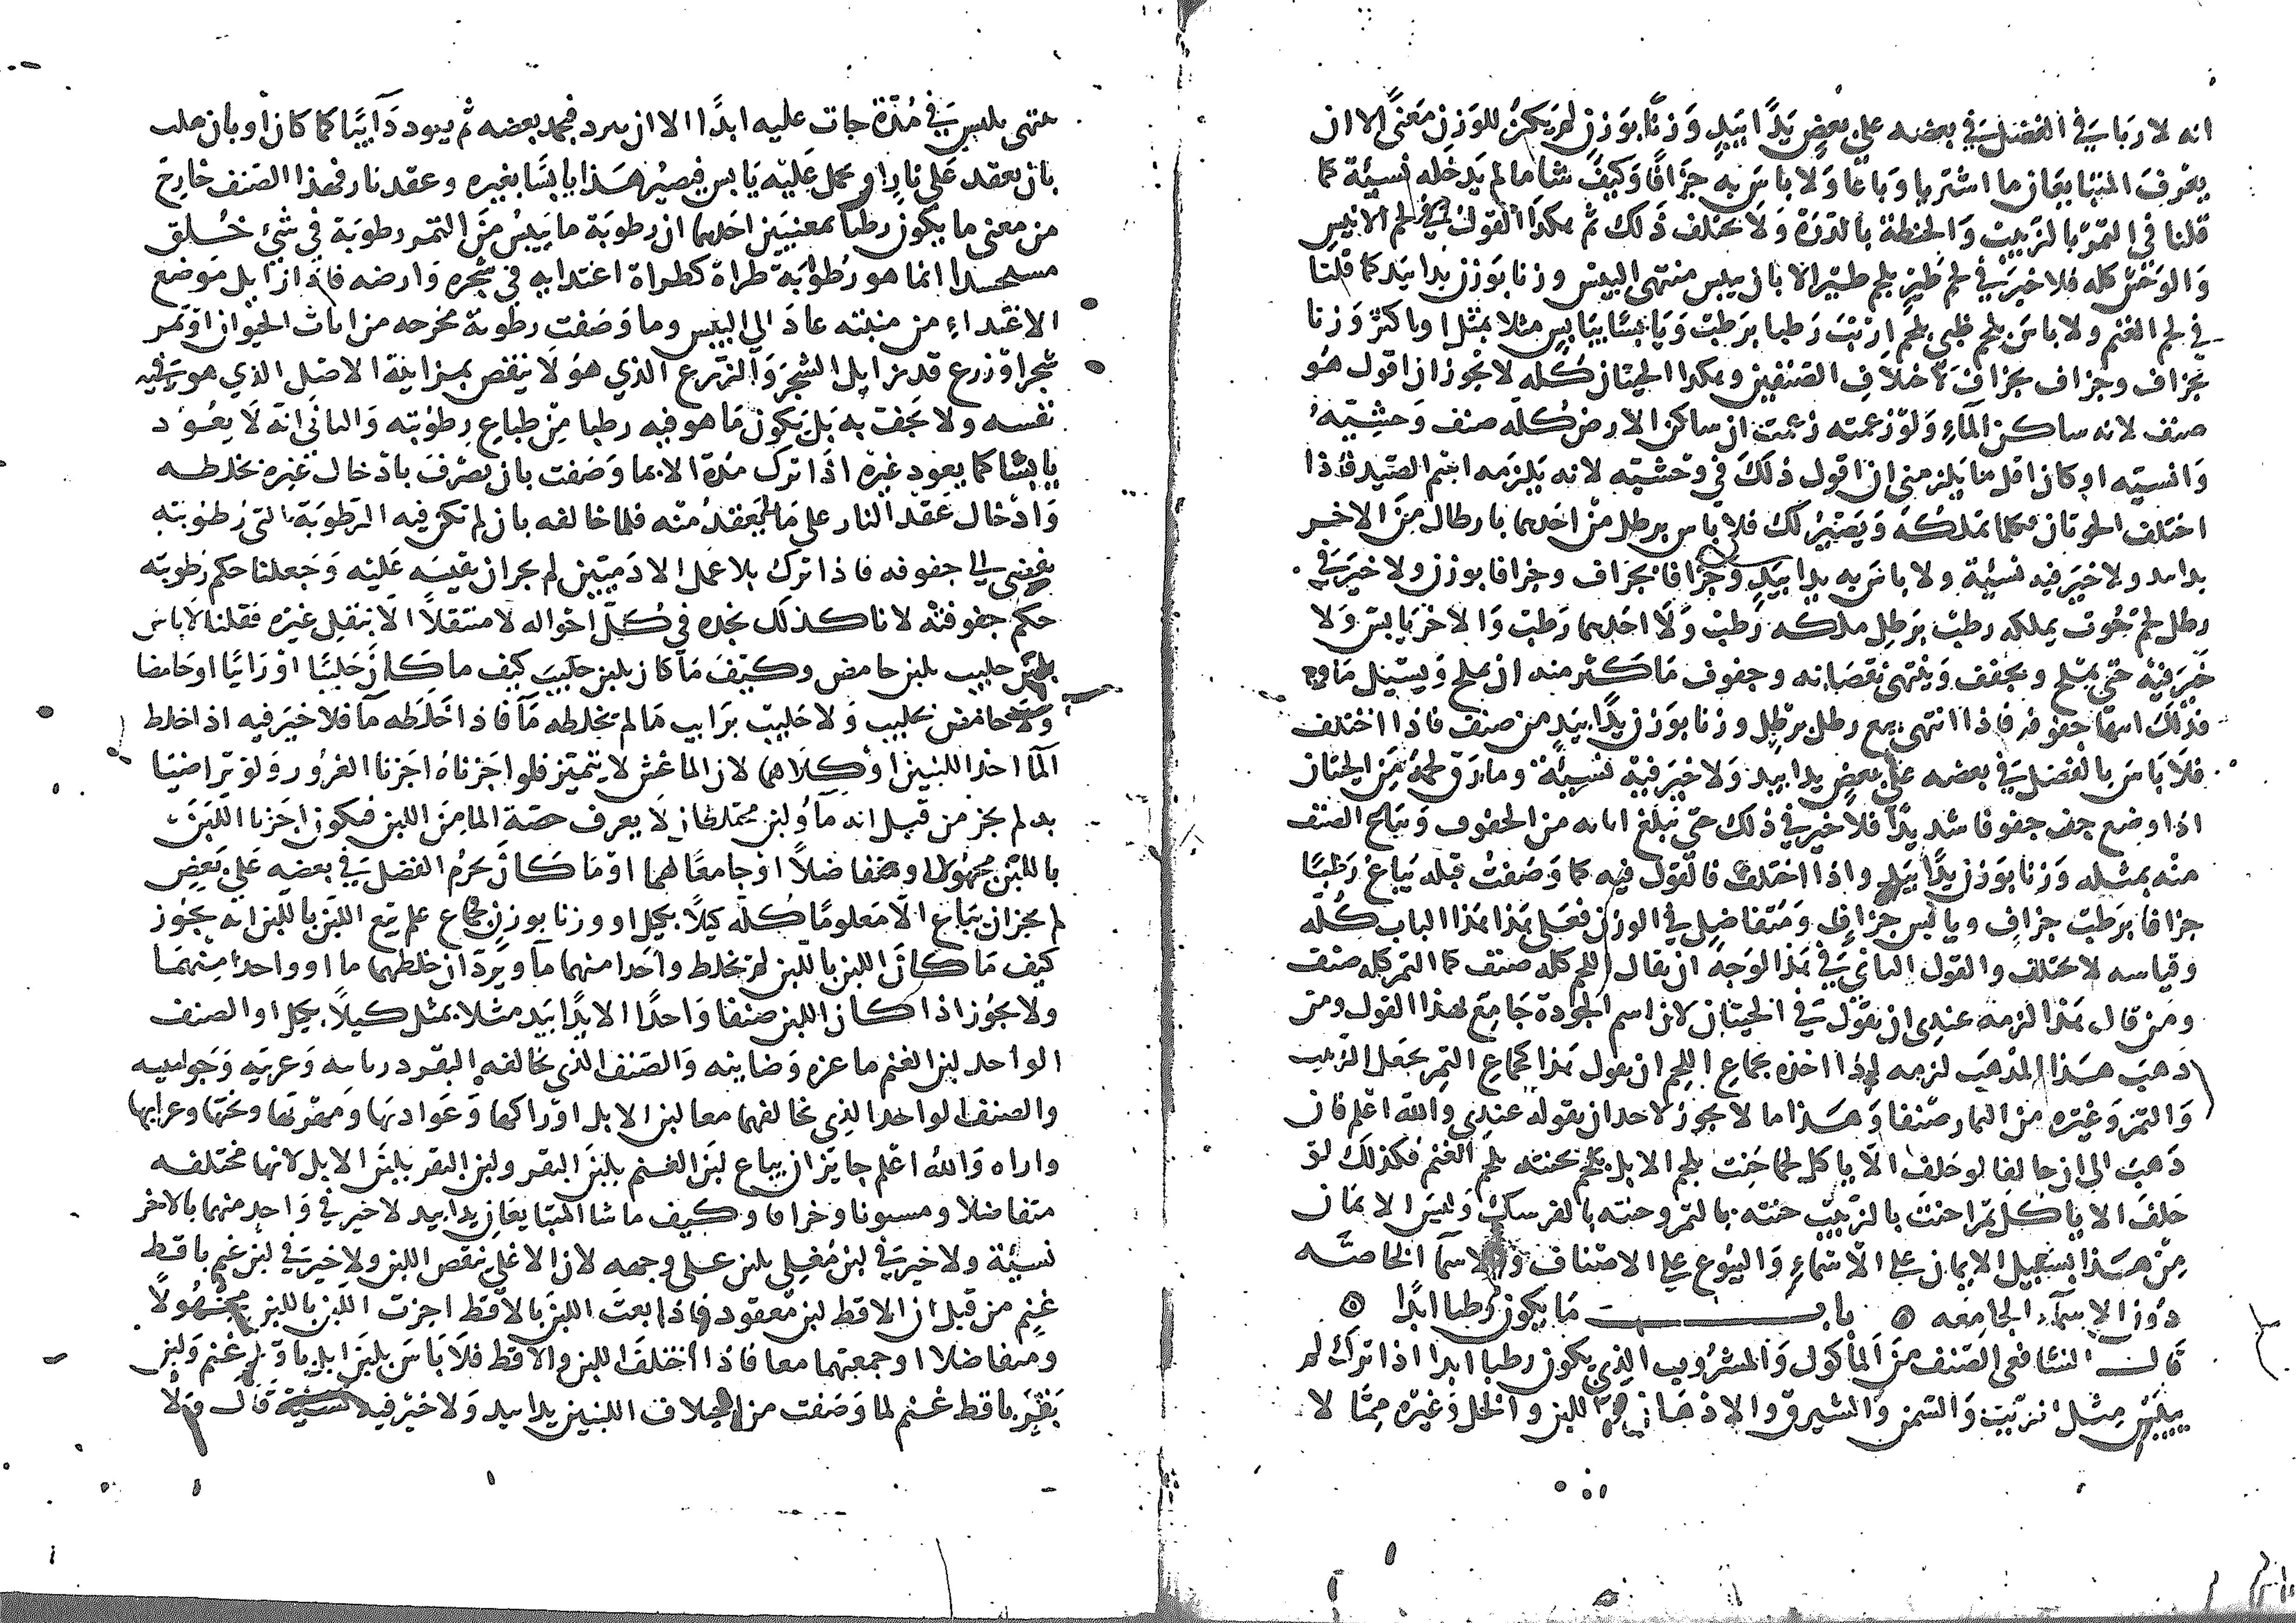 انه لا ربا في الفضل في بعضه على بعض يدا بيد وزنا بوزن لم يكن للوزن معنى الا ان
يعرف المتبايعان ما اشتريا وباعا ولا باس به جزافا وكيف شاا ما لم يدخله نسيئة كما
قلنا في التمر بالزبيب والحنطة بالذرة ولا يختلف ذلك ثم هكذا القول في لحم الانيس
والوحش كله فلا خير في لحم طير بلحم طير الا بان ييبس منتهى اليبس وزنا بوزن يدا بيد كما قلنا
في لحم الغنم ولا باس بلحم ظبي بلحم ارنب رطبا برطب ويابسا بيابس مثلا بمثل او باكثر وزنا
بجزاف وجزاف بجزاف لاختلاف الصنفين وهكذا الحيتان كله لا يجوز ان اقول هو
صنف لانه ساكن الماء ولو زعمته زعمت ان ساكن الارض كله صنف وحشيه
وانسيه او كان اقل ما يلزمني ان اقول ذلك في وحشيه لانه يلزمه اسم الصيد فاذا
اختلف الحوتان فكلما تملكه ويصير لك فلا باس برطل من احدهما بارطال من الاخر
يدا بيد ولا خير فيه نسيئة ولا باس به يدا بيد وجزافا بجزاف وجزافا بوزن ولا خير في
رطل لحم حوت يملكه رطب برطل ملكه رطب ولا احدهما رطب والاخر يابس ولا
خير فيه حتى يملح ويجفف وينتهي نقصانه وجفوف ما كثر منه ان يملح ويسيل ماوه
فذلك انتها جفوفه فاذا انتهى بيع رطل برطل وزنا بوزن يدا بيد من صنف فاذا اختلف
فلا باس بالفضل في بعضه على بعض يدا بيد ولا خير فيه نسيئة وما رق لحمه من الحيتان
اذا وضع جف جفوفا شديدا فلا خير في ذلك حتى يبلغ ابانه من الجفوف ويباع الصنف
منه بمثله وزنا بوزن يدا بيد واذا اختلف فالقول فيه كما وصفت قبله يباع رطبا
جزافا برطب جزاف ويابس جزاف ومتفاضل في الوزن فعلى هذا هذا الباب كله
وقياسه لا يختلف والقول الثاني في هذا الوجه ان يقال اللحم كله صنف كما التمر كله صنف
ومن قال هذا لزمه عندي ان يقول في الحيتان لان اسم الجودة جامع لهذا القول ومن
ذهب هذا المذهب لزمه اذا اخذه بجماع اللحم ان يقول هذا كجماع الثمر يجعل الزبيب
والتمر وغيره من الثمار صنفا وهذا ما لا يجوز لاحد ان يقوله عندي والله اعلم فان
ذهب الى ان حالفا لو حلف الا ياكل لحما حنث بلحم الابل بلحم حنثه بلحم الغنم فكذلك لو
حلف الا ياكل ثمرا حنث بالزبيب حنثه بالتمر وحنثه بالفرسك وليس الايمان
من هذا بسبيل الايمان على الاسماء والبيوع على الاصناف والاسما الخاصه
دون الاسماء الجامعه ه باب ما يكون رطبا ابدا ه
قال الشافعي الصنف من الماكول والمشروب الذي يكون رطبا ابدا اذا ترك لم
ييبس مثل الزيت والسمن والشيرق والادهان واللبن والخل وغيره مما لا
ينتهي بيبس في مدة جات عليه ابدا الا ان يبرد فيجمد بعضه ثم يعود ذايبا كما كان او بان يقلب
بان يعقد على نار او يحمل عليه يابس فيصير هذا يابسا بغيره وعقد نار فهذا الصنف خارج
من معنى ما يكون رطبا بمعنيين احدهما ان رطوبة ما يبس من التمر رطوبة في شي خلق
مستجسدا انما هو رطوبة طراة كطراة اغتدايه في شجره وارضه فاذا زايل موضع
الاغتداء من منبته عاد الى اليبس وما وصفت رطوبة مخرجه من اناث الحيوان او ثمر
شجر او زرع قد زايل الشجر والزرع الذي هو لا ينقص بمزاينة الاصل الذي هو فيه
نفسه ولا يجف به بل يكون ما هو فيه رطبا من طباع رطوبته والثاني انه لا يعود
يابسا كما يعود غيره اذا ترك مدة الا بما وصفت بان يصرف بادخال غيره بخلطه
وادخال عقد النار على ما يعقد منه فلما خالفه بان لم تكن فيه الرطوبة التي رطوبته
يفضي الى جفوفه فاذا ترك بلا عمل الادميين لم يجز ان نقيسه عليه وجعلنا حكم رطوبته
حكم جفوفته لانا كذلك نجده في كل احواله لا منتقلا الا بنقل غيره فقلنا لا باس
بلبن حليب بلبن حامض وكيف ما كان بلبن حليب كيف ما كان حليبا او رايبا او حامضا
ولا حامض بحليب ولا حليب برايب ما لم يخلطه ما فاذا خلطه ما فلا خير فيه اذا خلط
الما احد اللبنين او كلاهما لان الما غش لا يتميز فلو اجزناه اجزنا الغرور ولو تراضيا
به لم يجز من قبل انه ما ولبن مختلطان لا يعرف حصة الما من اللبن فيكون اجزنا اللبن
باللبن مجهولا ومتفاضلا او جامعا لهما او ما كان يحرم الفضل في بعضه على بعض
لم يجز ان يبتاع الا معلوما كله كيلا بكيل او وزنا بوزن جماع علم بيع اللبن باللبن انه يجوز
كيف ما كان اللبن باللبن لم يخلط واحدا منهما ما ويرد ان خلطهما ما او واحدا منهما
ولا يجوز اذا كان اللبن صنفا واحدا الا يدا بيد مثلا بمثل كيلا بكيل او الصنف
الواحد لبن الغنم ماعزه وضاينه والصنف الذي يخالفه البقر دربانيه وعربيه وجواميسه
والصنف الواحد الذي يخالفهما معا لبن الابل اوراكها وعوادنها ومهريها وبختها وعرابها
واراه والله اعلم جايز ان يباع لبن الغنم بلبن البقر ولبن البقر بلبن الابل لانها مختلفه
متفاضلا ومستويا وجزافا وكيف ما شا المتبايعان يدا بيد لا خير في واحد منهما بالاخر
نسيئة ولا خير في لبن مغلي بلبن على وجهه لان الاغلا ينقص اللبن ولا خير في لبن غنم باقط
غنم من قبل ان الاقط لبن معقود فاذا بعت اللبن بالاقط اجزت اللبن باللبن مجهولا
ومتفاضلا او جمعتهما معا فاذا اختلف اللبن والاقط فلا باس بلبن ابل باقط غنم ولبن
بقر باقط غنم لما وصفت من اختلاف اللبنين يدا بيد ولا خير فيه نسيئة قال ولا